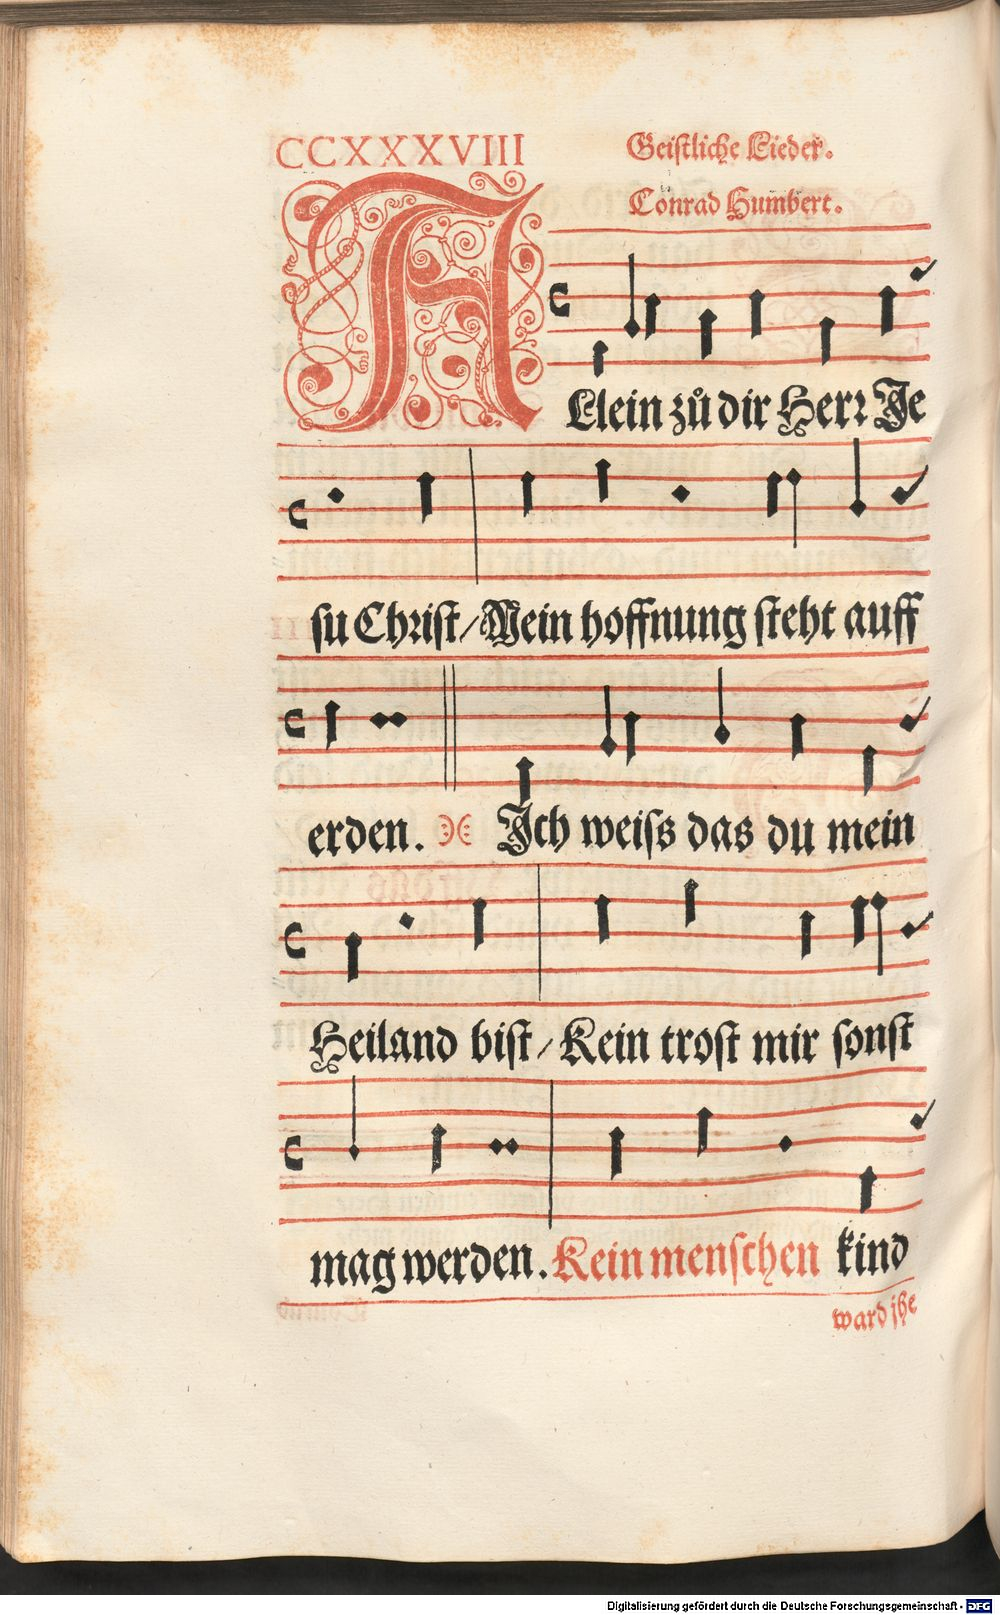 CCXXXVIII Geistliche Lieder.
Conrad Humbert.
ALlein zů dir Herr Je
su Christ/Mein hoffnung steht auff
erden. Ich weiss das du mein
Heiland bist/Kein trost mir sonst
mag werden. Kein menschen kind
ward jhe
Digitalisierung gefördert durch die Deutsche Forschungsgemeinschaft - DFG